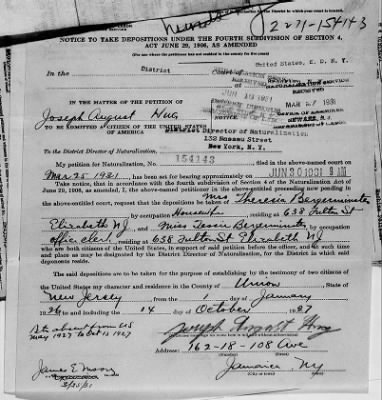 2271-154143
NOTICE TO TAKE DEPOSITIONS UNDER THE FOURTH SUBDIVISION OF SECTION 4,
ACT JUNE 29, 1906, AS AMENDED
In the District Court of United States, E. D. N. Y.
JUN 19 1931
MAR 27 1931
IN THE MATTER OF THE PETITION OF
Joseph August Hug
TO BE ADMITTED A CITIZEN OF THE UNITED STATES
OF AMERICA
District Director of Naturalization
132 Nassau Street
New York, N. Y.
To the District Director of Naturalization:
My petition for Naturalization, No. 154143 filed in the above-named court on
Mar 25 1931, has been set for hearing approximately on JUN 30 1931
Take notice, that in accordance with the fourth subdivision of section 4 of the Naturalization Act of
June 29, 1906, as amended, I, the above-named petitioner in the above-entitled proceeding now pending in
the above-entitled court, request that the depositions be taken of Mrs Theresia Bergerminster
by occupation Housewife residing at 638 Fulton St
Elizabeth NJ and Miss Tessie Bergerminster by occupation
office clerk, residing at 638 Fulton St. Elizabeth NJ
who are both citizens of the United States, in support of said petition before the officer, and at such time
and place as may be designated by the District Director of Naturalization, for the District in which said
deponents reside.
The said depositions are to be taken for the purpose of establishing by the testimony of two citizens of the
United States my character and residence in the County of Union, State of
New Jersey, from the 1 day of January
1926 to and including the 14 day of October 1927
absent from US
May 1927 to Oct 13 1927
Joseph August Hug
Address: 162-18-108 Ave
Jamaica, NY
James E. Moore
3/25/31